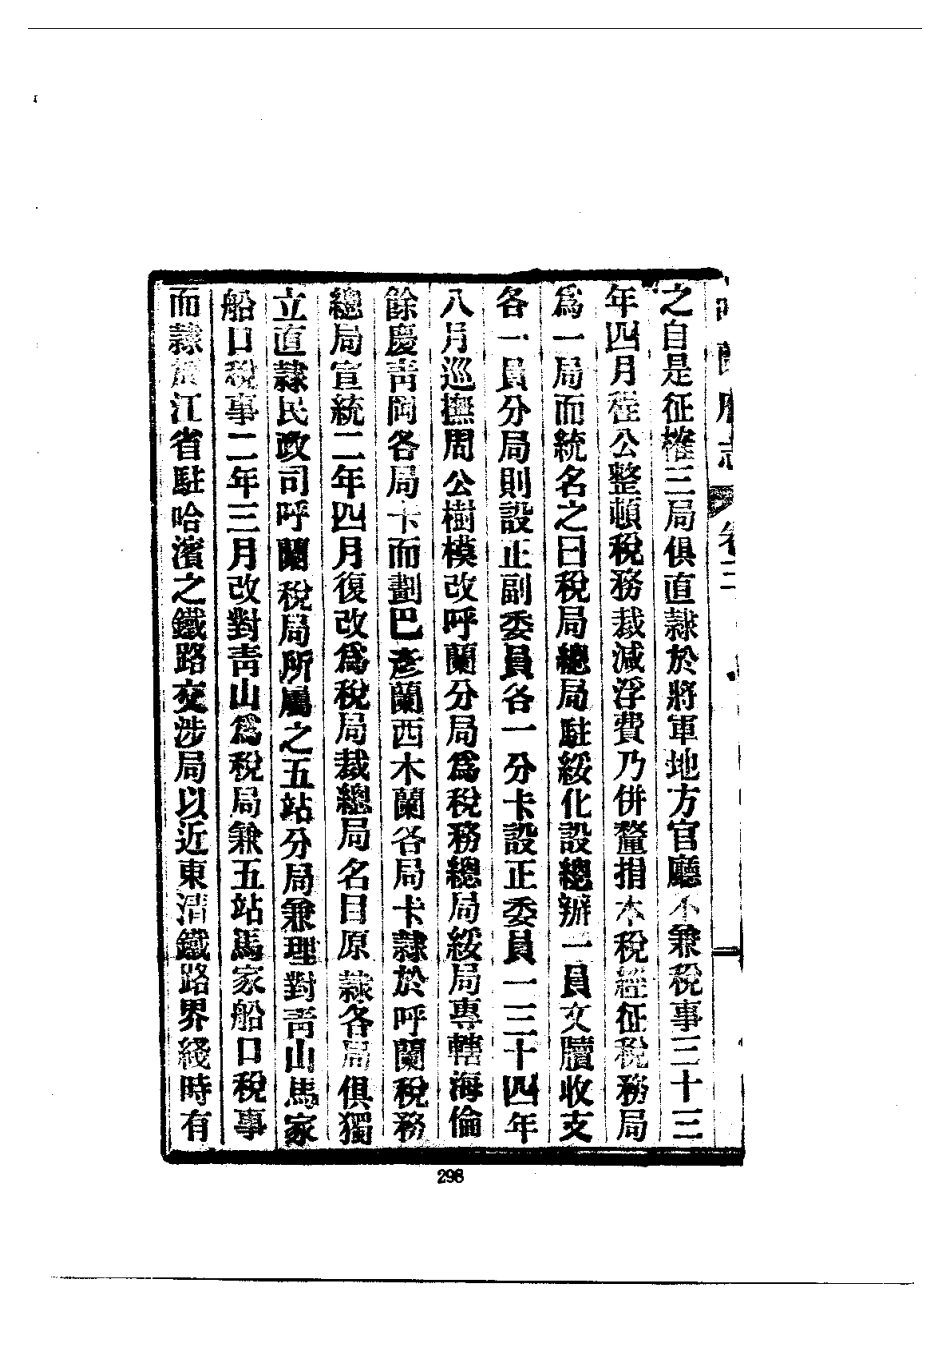 蘭府志 卷三
之自是征榷三局俱直隷於將軍地方官廳不兼稅事三十三
年四月程公整頓稅務裁減浮費乃併釐捐木稅經征稅務局
爲一局而統名之曰稅局總局駐綏化設總辦一員文牘收支
各一員分局則設正副委員各一分卡設正委員一三十四年
八月巡撫周公樹模改呼蘭分局爲稅務總局綏局專轄海倫
餘慶靑岡各局卡而劃巴彥蘭西木蘭各局卡隷於呼蘭稅務
總局宣統二年四月復改爲稅局裁總局名目原隷各局俱獨
立直隷民政司呼蘭稅局所屬之五站分局兼理對靑山馬家
船口稅事二年三月改對靑山爲稅局兼五站馬家船口稅事
而隷於江省駐哈濱之鐵路交涉局以近東淸鐵路界綫時有
298